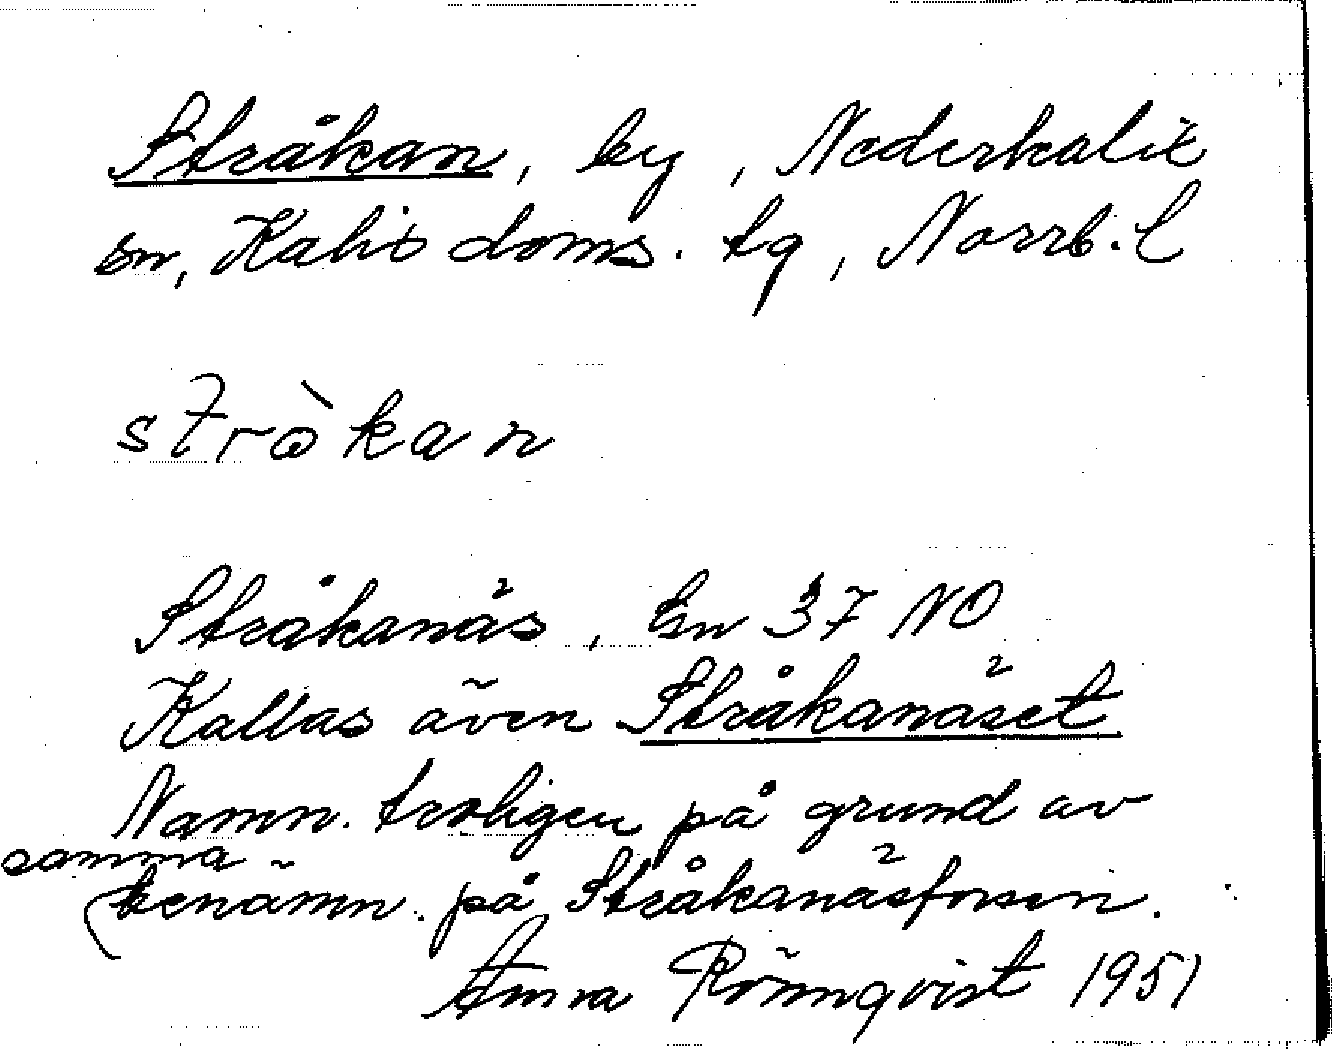 Stråkan, by, Nederkalix
sn, Kalix doms. tg, Norrb. l
stròkan
Stråkanäs, En 37 NO
Kallas även Stråkanäset
Namn. troligen på grund av
samma
benämn. på Stråkanäsforsen.
Anna Rönnqvist 1951